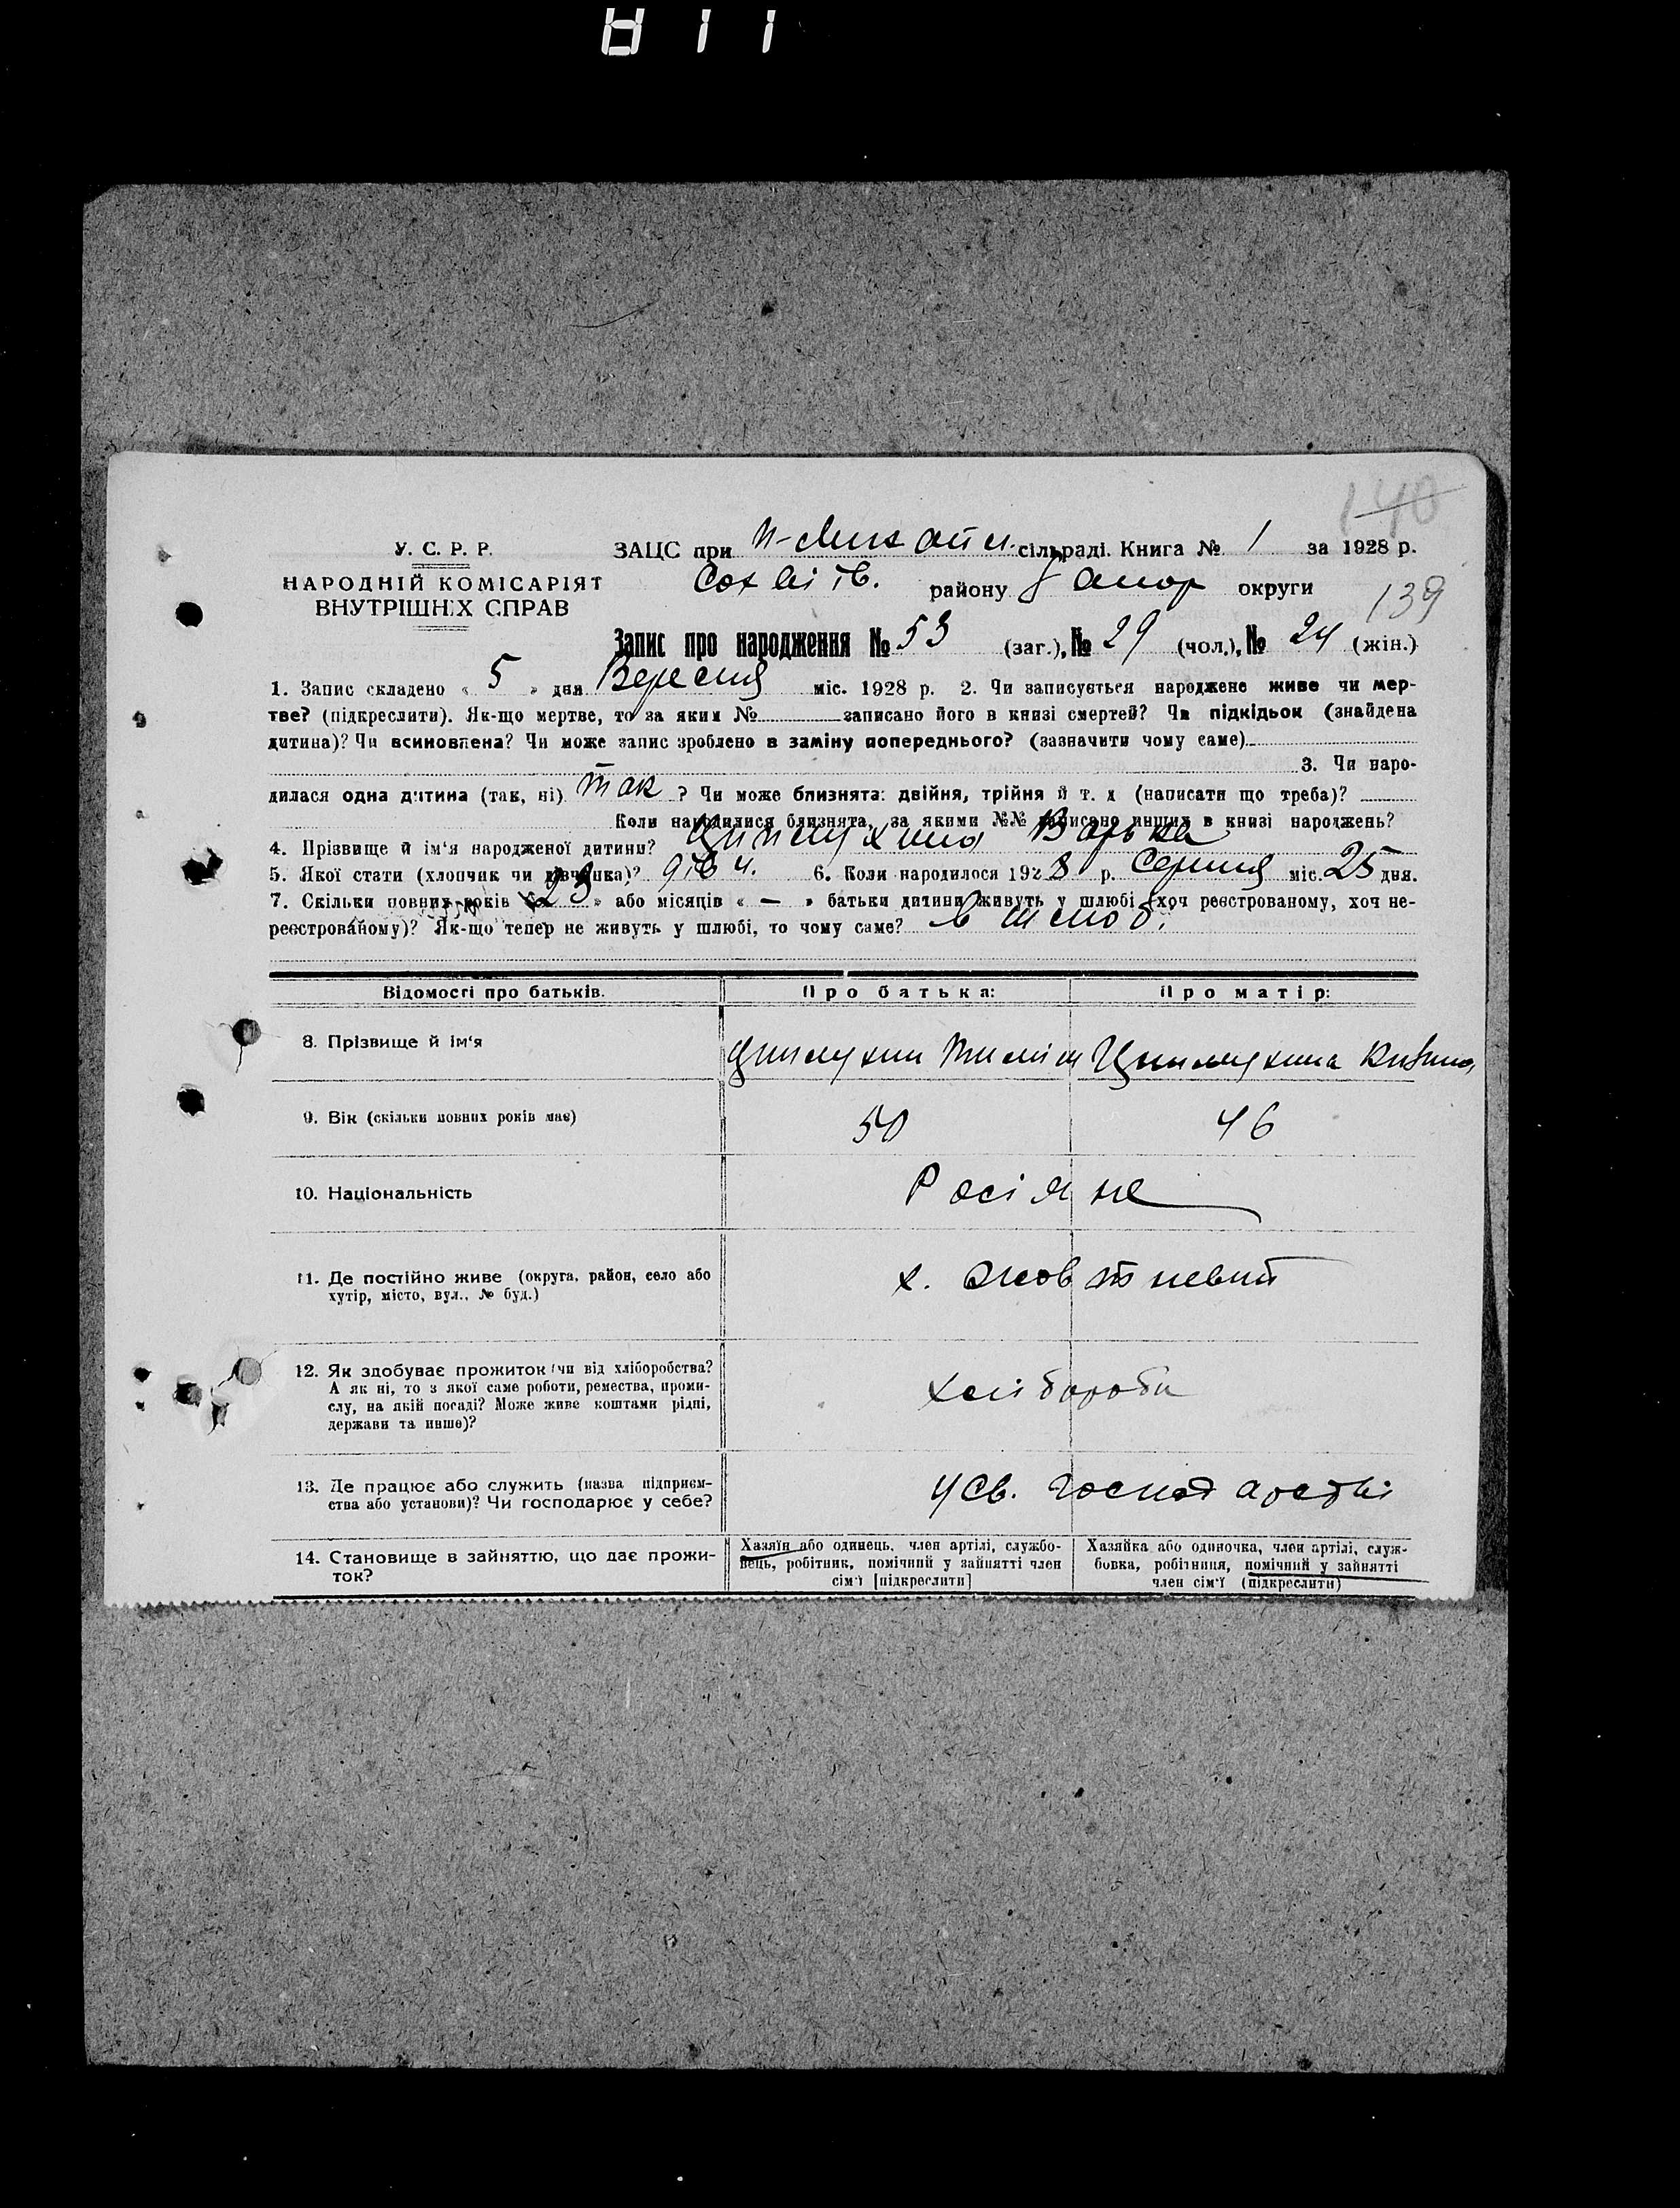 У. С. Р. Р.
НАРОДНІЙ КОМІСАРІЯТ
ВНУТРІШНІХ СПРАВ
140
ЗАЦС при сільраді. Книга № 1 за 1928 р.
району округи
139
Запис про народження № 53 (заг.), № 29 (чол.), № 24 (жін.)
1. Запис складено « 5 » дня Вересня міс. 1928 р. 2. Чи записується народжене живе чи мер-
тве? (підкреслити). Як-що мертве, то за яким № записано його в книзі смертей? Чи підкідьок (знайдена
дитина)? Чи всиновлена? Чи може запис зроблено в заміну попереднього? (зазначити чому саме)
3. Чи наро-
дилася одна дитина (так, ні) так ? Чи може близнята: двійня, трійня й т. д (написати що треба)?
Коли народилися близнята, за якими №№ записано инших в книзі народжень?
4. Прізвище й ім'я народженої дитини? Варька
5. Якої стати (хлопчик чи дівчинка)? дівч. 6. Коли народилося 1928 р. Серпня міс. 25 дня.
7. Скільки повних років « 23 » або місяців « — » батьки дитини живуть у шлюбі (хоч реєстрованому, хоч не-
реєстрованому)? Як-що тепер не живуть у шлюбі, то чому саме? в шлюб.
Відомості про батьків. Про батька: Про матір:
8. Прізвище й ім'я
9. Вік (скільки повних років має) 50 46
10. Національність Росіяне
11. Де постійно живе (округа, район, село або
хутір, місто, вул., № буд.) х. Жовтневий
12. Як здобуває прожиток (чи від хліборобства?
А як ні, то з якої саме роботи, ремества, проми-
слу, на якій посаді? Може живе коштами рідні,
держави та инше)? хлібороби
13. Де працює або служить (назва підприєм-
ства або установи)? Чи господарює у себе? У св. господарстві
14. Становище в зайняттю, що дає прожи-
ток?
Хазяїн або одинець, член артілі, службо-
вець, робітник, помічний у зайнятті член
сім'ї [підкреслити]
Хазяйка або одиночка, член артілі, служ-
бовка, робітниця, помічний у зайнятті
член сім'ї (підкреслити)